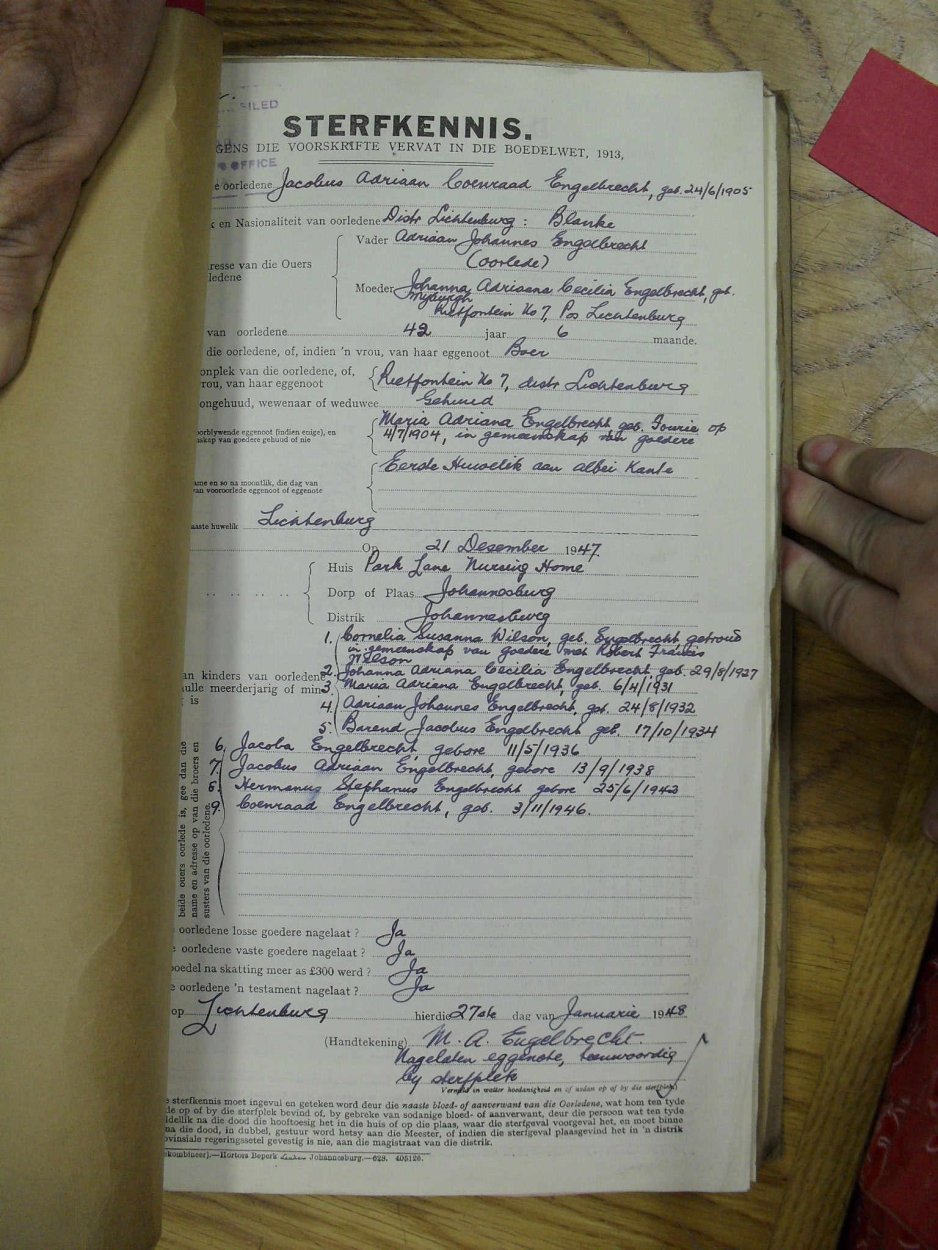 FILED
STERFKENNIS.
GENS DIE VOORSKRIFTE VERVAT IN DIE BOEDELWET, 1913,
OFFICE
e oorledene Jacobus Adriaan Coenraad Engelbrecht, geb. 24/6/1905
k en Nasionaliteit van oorledene Distr Lichtenburg : Blanke
Vader Adriaan Johannes Engelbrecht
(oorlede)
resse van die Ouers
ledene
Moeder Johanna Adriaana Cecilia Engelbrecht, geb.
Myburgh
Rietfontein No 7, Pos Lichtenburg
van oorledene 42 jaar 6 maande.
die oorledene, of, indien 'n vrou, van haar eggenoot Boer
onplek van die oorledene, of,
rou, van haar eggenoot
Rietfontein No 7, distr Lichtenburg
ongehuud, wewenaar of weduwee Gehuud
oorblywende eggenoot (indien enige), en
skap van goedere gehuud of nie
Maria Adriana Engelbrecht geb. Fourie op
4/7/1904, in gemeenskap van goedere
Eerste Huwelik aan albei Kante
ame en so na moontlik, die dag van
van vooroorlede eggenoot of eggenote
aaste huwelik Lichtenburg
Op 21 Desember 1947.
Huis Park Lane Nursing Home
Dorp of Plaas Johannesburg
Distrik Johannesburg
1. Cornelia Susanna Wilson, geb. Engelbrecht getroud
in gemeenskap van goedere met Robert Francis
Wilson
2. Johanna Adriana Cecilia Engelbrecht, geb. 29/8/1927
an kinders van oorledene
3. Maria Adriana Engelbrecht, geb. 6/4/1931
ulle meerderjarig of min
is
4. Adriaan Johannes Engelbrecht, geb. 24/8/1932
5. Barend Jacobus Engelbrecht geb. 17/10/1934
6. Jacoba Engelbrecht gebore 11/5/1936
7. Jacobus Adriaan Engelbrecht, gebore 13/9/1938
8. Hermanus Stephanus Engelbrecht gebore 25/6/1942
9. Coenraad Engelbrecht, geb. 3/11/1946.
beide ouers oorlede is, gee dan die
name en adresse op van die broers en
susters van die oorledene.
e oorledene losse goedere nagelaat ? Ja
e oorledene vaste goedere nagelaat ? Ja
boedel na skatting meer as £300 werd ? Ja
e oorledene 'n testament nagelaat ? Ja
op Lichtenburg hierdie 27ste dag van Januarie 1948
(Handtekening) M. A. Engelbrecht.
Nagelaten eggenote, teenwoordig
by sterfplek
Vermeld in watter hoedanigheid en of nadan op of by die sterfplek)
e sterfkennis moet ingevul en geteken word deur die naaste bloed- of aanverwant van die Oorledene, wat hom ten tyde
de op of by die sterfplek bevind of, by gebreke van sodanige bloed- of aanverwant, deur die persoon wat ten tyde
idellik na die dood die hooftoesig het in die huis of op die plaas, waar die sterfgeval voorgeval het, en moet binne
na die dood, in dubbel, gestuur word hetsy aan die Meester, of indien die sterfgeval plaasgevind het in 'n distrik
ovinsiale regeringssetel gevestig is nie, aan die magistraat van die distrik.
ekombineer).—Hortors Beperk Johannesburg.—628. 405126.